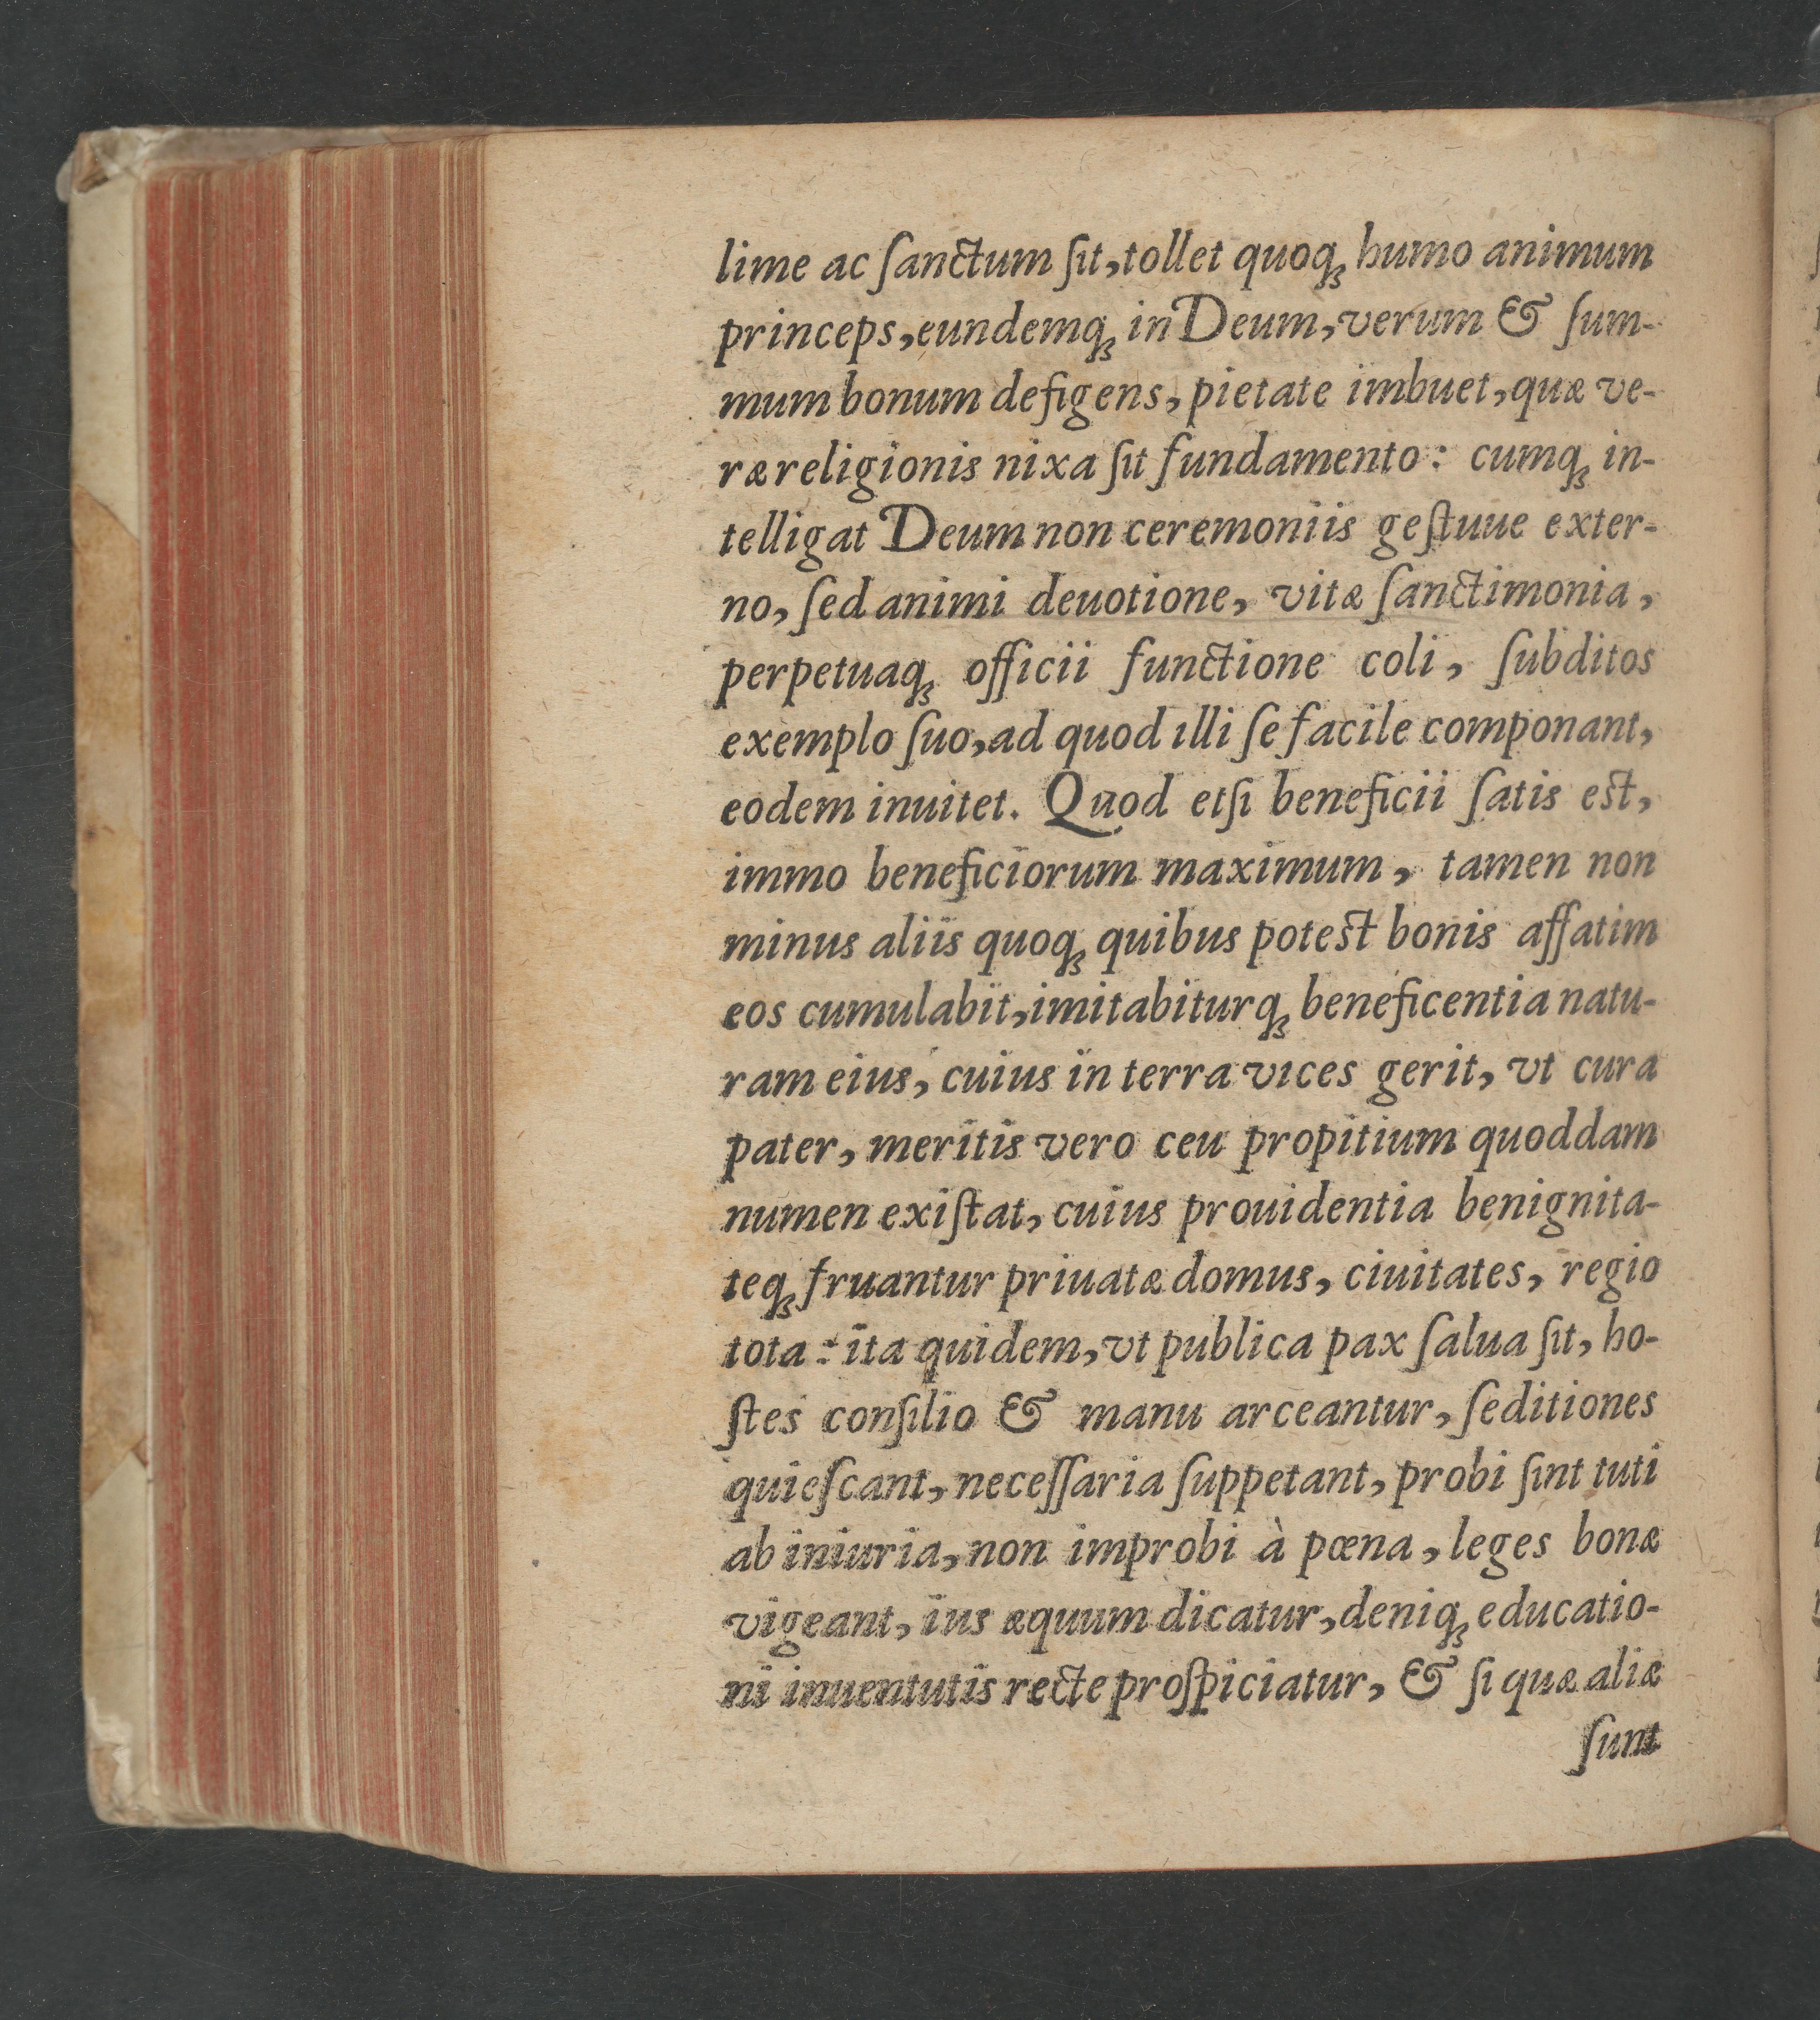 lime ac ſanctum ſit, tollet quoq́; humo animum
princeps, eundemq́; in Deum, verum & ſum-
mum bonum defigens, pietate imbuet, quæ ve-
ræ religionis nixa ſit fundamento: cumq́; in-
telligat Deum non ceremoniis geſtuue exter-
no, ſed animi deuotione, vitæ ſanctimonia,
perpetuaq́; officii functione coli, ſubditos
exemplo ſuo, ad quod illi ſe facile componant,
eodem inuitet. Quod etſi beneficii ſatis est,
immo beneficiorum maximum, tamen non
minus aliis quoq́; quibus potest bonis affatim
eos cumulabit, imitabiturq́; beneficentia natu-
ram eius, cuius in terra vices gerit, vt cura
pater, meritis vero ceu propitium quoddam
numen exiſtat, cuius prouidentia benignita-
teq́; fruantur priuatæ domus, ciuitates, regio
tota: ita quidem, vt publica pax ſalua ſit, ho-
ſtes conſilio & manu arceantur, ſeditiones
quieſcant, neceſſaria ſuppetant, probi ſint tuti
ab iniuria, non improbi à pœna, leges bonæ
vigeant, ius æquum dicatur, deniq́; educatio-
ni iuuentutis recte proſpiciatur, & ſi quæ aliæ
ſunt